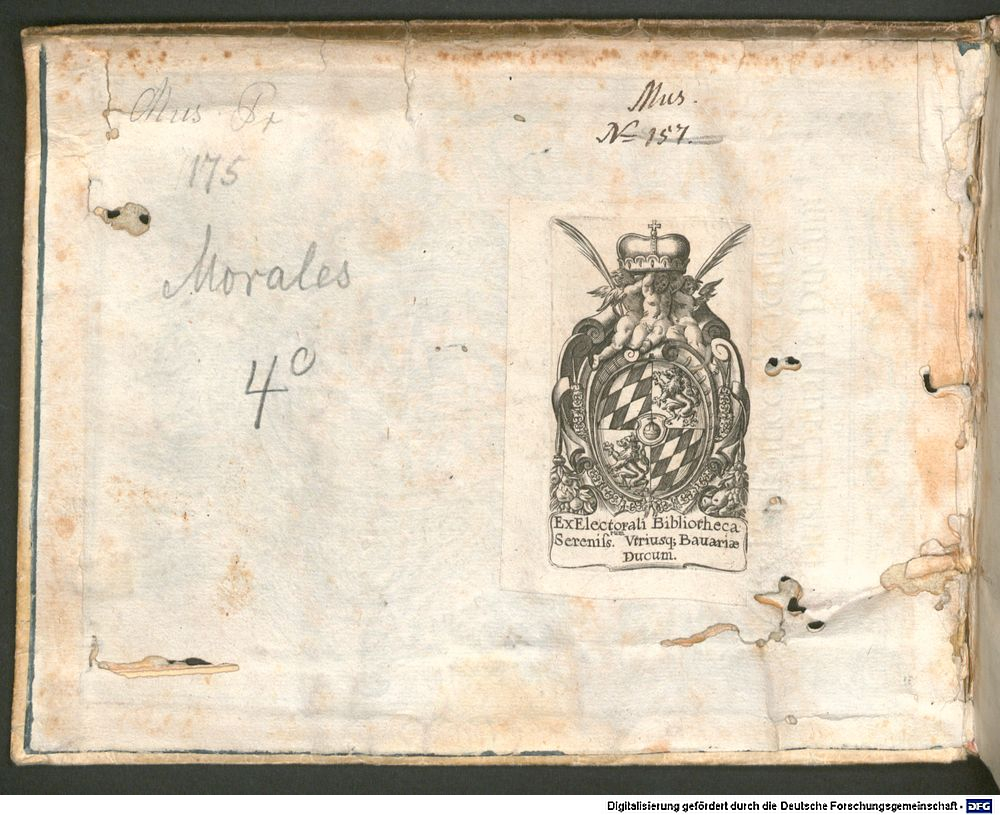 Mus. Pr
175
Morales
4º
Mus.
No 157.
Ex Electorali Bibliotheca
Sereniſs.rum Vtriusq; Bauariæ
Ducum.
Digitalisierung gefördert durch die Deutsche Forschungsgemeinschaft - DFG